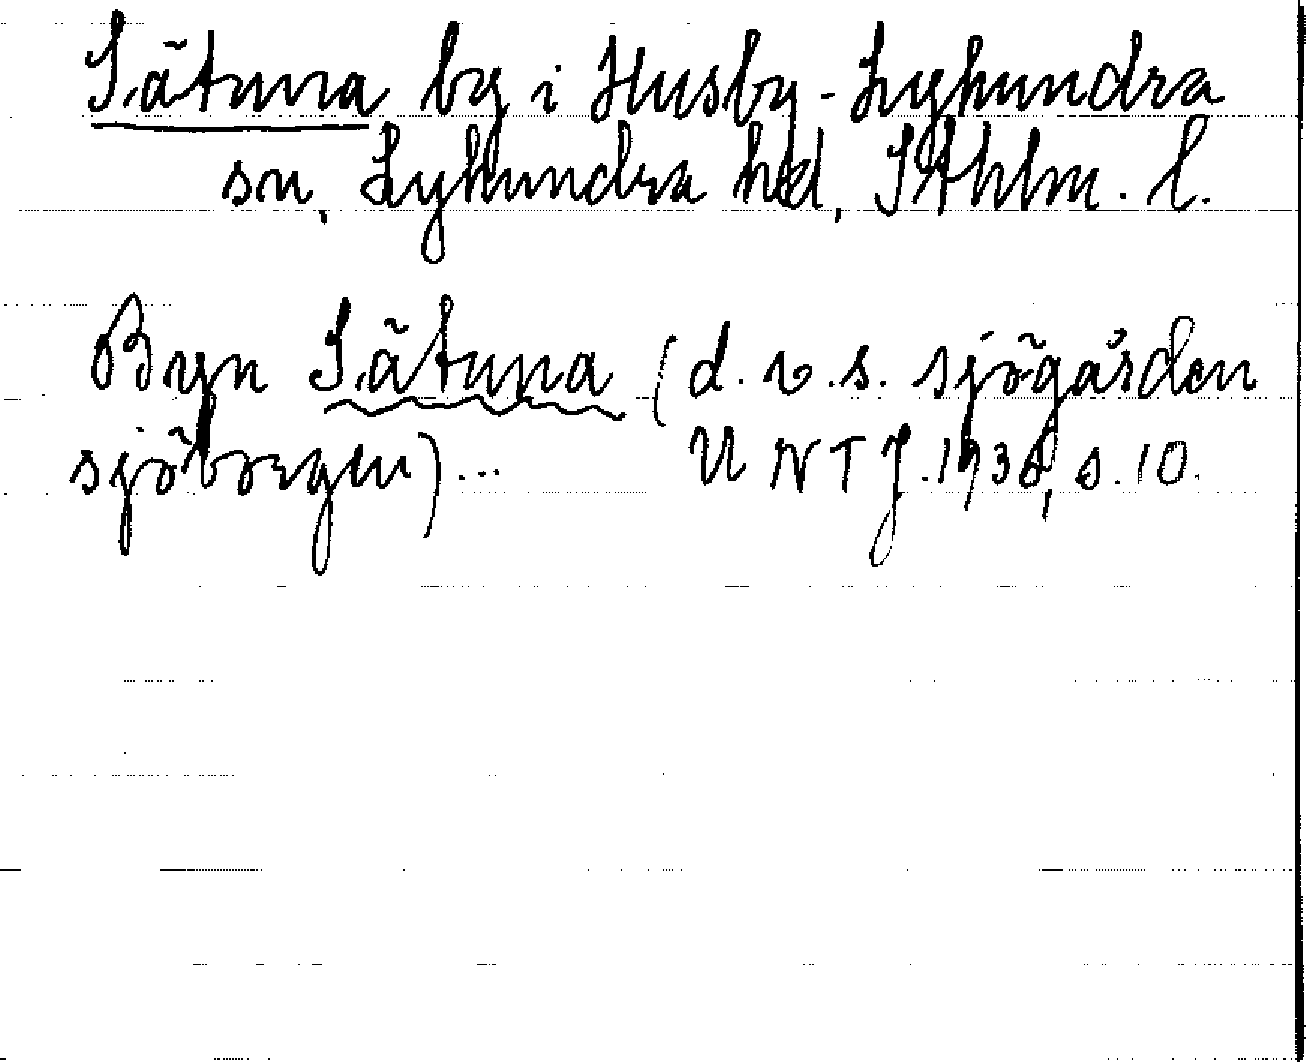 Sätuna by i Husby-Lyhundra
sn, Lyhundra hd, Sthlm. l.
Byn Sätuna (d.v.s. sjögården
sjöborgen)... UNTJ. 1938, s. 10.